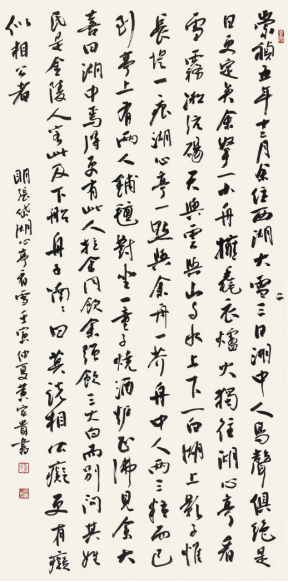 崇禎五年十三月余住西湖大雪三日湖中人鳥聲俱絕是
二
日更定矣余拏一小舟擁毳衣爐火獨往湖心亭看
雪霧凇沆碭天與雲與山與水上下一白湖上影子惟
長堤一痕湖心亭一點與余舟一芥舟中人兩三粒而已
到亭上有兩人鋪氈對坐一童子燒酒爐正沸見余大
喜曰湖中焉得更有此人拉余同飲余強飲三大白而別問其姓
氏是金陵人客此及下船舟子喃喃曰莫說相公癡更有癡
似相公者
明張岱湖心亭看雪壬寅仲夏黃宏貴書